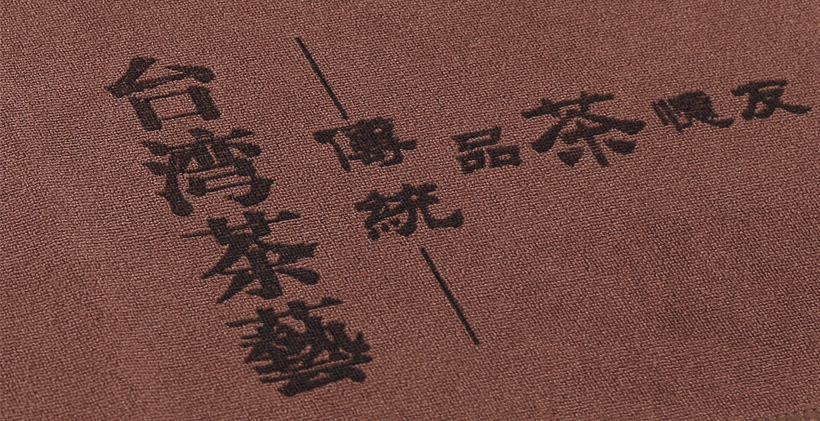 台湾茶藝
傳統
品茶憶友